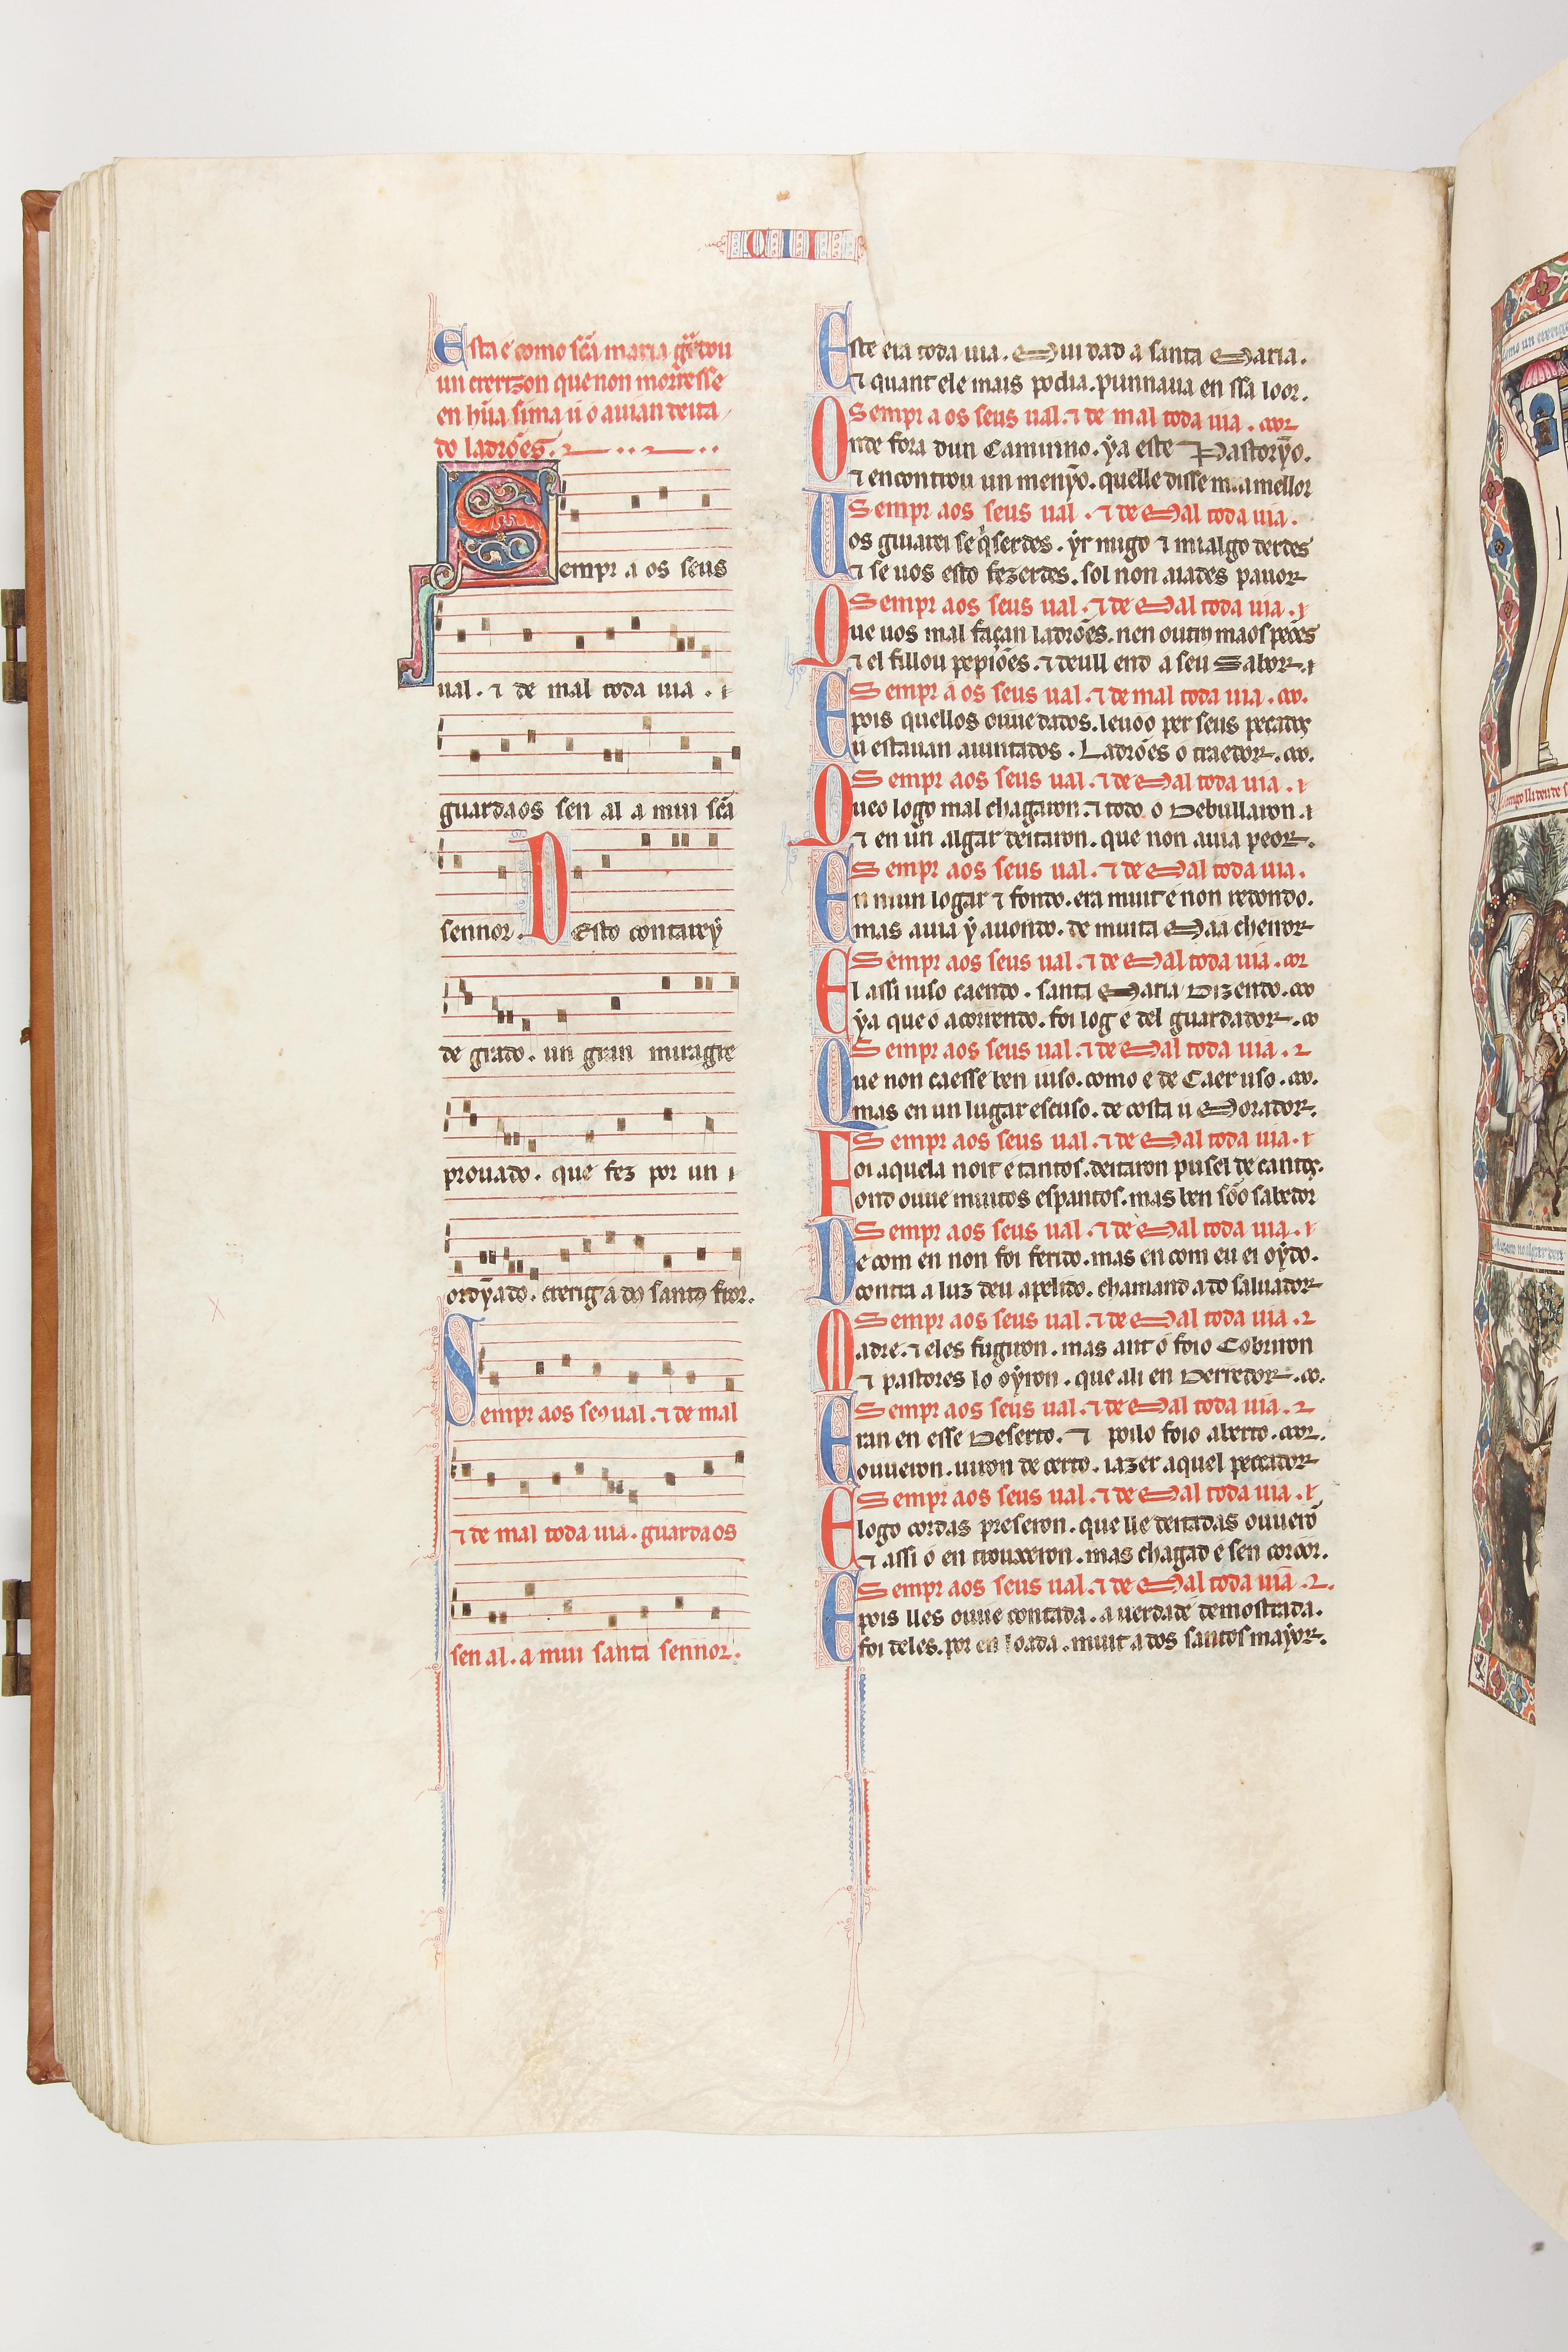 CII
Esta é como scã maria gr̃dou
un crerizon que non morresse
en hũa sima u o auian deita
do ladrões.
Sempr a os seus
ual. ⁊ de mal toda uia.
guardaos sen al a mui scã
sennor. Desto contarey
de grado. un gran miragre
prouado. que fez por un
ordỹado. crerig a dos santos fror.
Sempr aos seus ual. ⁊ de mal
⁊ de mal toda uia. guardaos
sen al. a mui santa sennor.
Este era toda uia. Mui dad a santa Maria.
⁊ quant ele mais podia. punnaua en ssa loor.
Sempr a os seus ual. ⁊ de mal toda uia.
Onde fora dun Caminno. ya este Pastorỹo.
⁊ encontrou un menỹo. quelle disse mia mellor
Sempr aos seus ual. ⁊ de Mal toda uia.
Uos guiarei se q̇serdes. yr migo ⁊ mi algo derdes
⁊ se uos esto fezerdes. sol non aiades pauor
Sempr aos seus ual. ⁊ de Mal toda uia.
Que uos mal façan ladrões. nen outros maos peões
⁊ el fillou pepiões. ⁊ deull end a seu Sabor.
Sempr a os seus ual. ⁊ de mal toda uia.
E pois quellos ouue dados. leuoo per seus pecados
u estauan aiuntados. Ladrões o traedor.
Sempr aos seus ual. ⁊ de Mal toda uia.
Que o logo mal chagaron. ⁊ todo o Debullaron.
⁊ en un algar deitaron. que non auia peor.
Sempr aos seus ual. ⁊ de Mal toda uia.
En mun logar ⁊ fondo. era muit e non redondo.
mas auia y auondo. de muita Maa cheiror
Sempr aos seus ual. ⁊ de Mal toda uia.
El assi iuso caendo. santa Maria Dizendo.
ya que o acorrendo. foi log e del guardador.
Sempr aos seus ual. ⁊ de Mal toda uia.
Que non caesse ben iuso. como e de Caer uso.
mas en un lugar escuso. de costa u Morador.
Sempr aos seus ual. ⁊ de Mal toda uia.
Foi aquela noit e tantos. deitaron pu sel de cantos.
ond ouue muitos espantos. mas ben sõo sabedor
Sempr aos seus ual. ⁊ de Mal toda uia.
De com en non foi ferido. mas en com eu ei oydo.
contra a luz deu apelido. chamand a do saluador
Sempr aos seus ual. ⁊ de Mal toda uia.
Madre. ⁊ eles fugiron. mas ant o foio Cobriron
⁊ pastores lo oyron. que ali en Derredor.
Sempr aos seus ual. ⁊ de Mal toda uia.
Eran en esse Deserto. ⁊ poilo foio aberto.
ouueron. uiron de certo. iazer aquel peccador
Sempr aos seus ual. ⁊ de Mal toda uia.
E logo cordas preseron. que lle deitadas ouuerõ
⁊ assi o en trouxeron. mas chagad e sen coor.
Sempr aos seus ual. ⁊ de Mal toda uia.
E pois lles ouue contada. a uerdade demostrada.
foi deles. por en loada. muit a dos santos mayor.